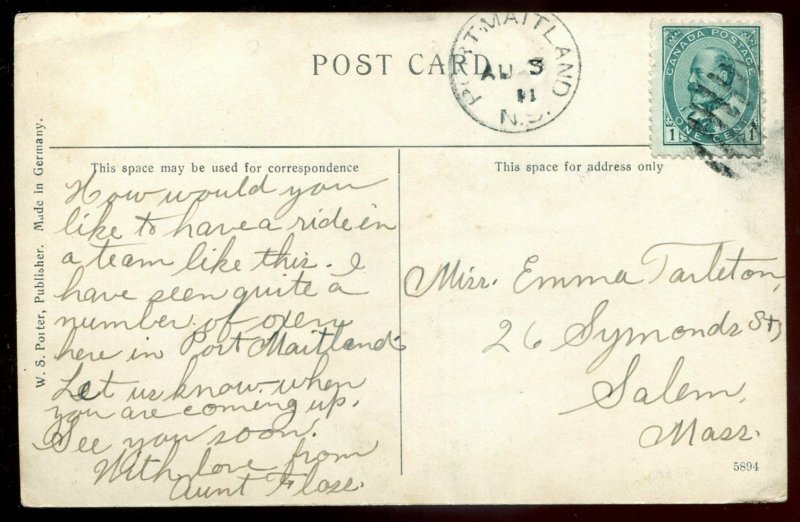 POST CARD
PORT MAITLAND
AU 3
11
N.S.
CANADA POSTAGE
1 1
ONE CENT
This space may be used for correspondence
This space for address only
How would you
like to have a ride in
a team like this. I
have seen quite a
number of oxen
here in Port Maitland.
Let us know when
you are coming up.
See you soon.
With love from
Aunt Flose.
Miss. Emma Tarleton,
26 Symonds St,
Salem,
Mass.
5894
W. S. Porter, Publisher. Made in Germany.